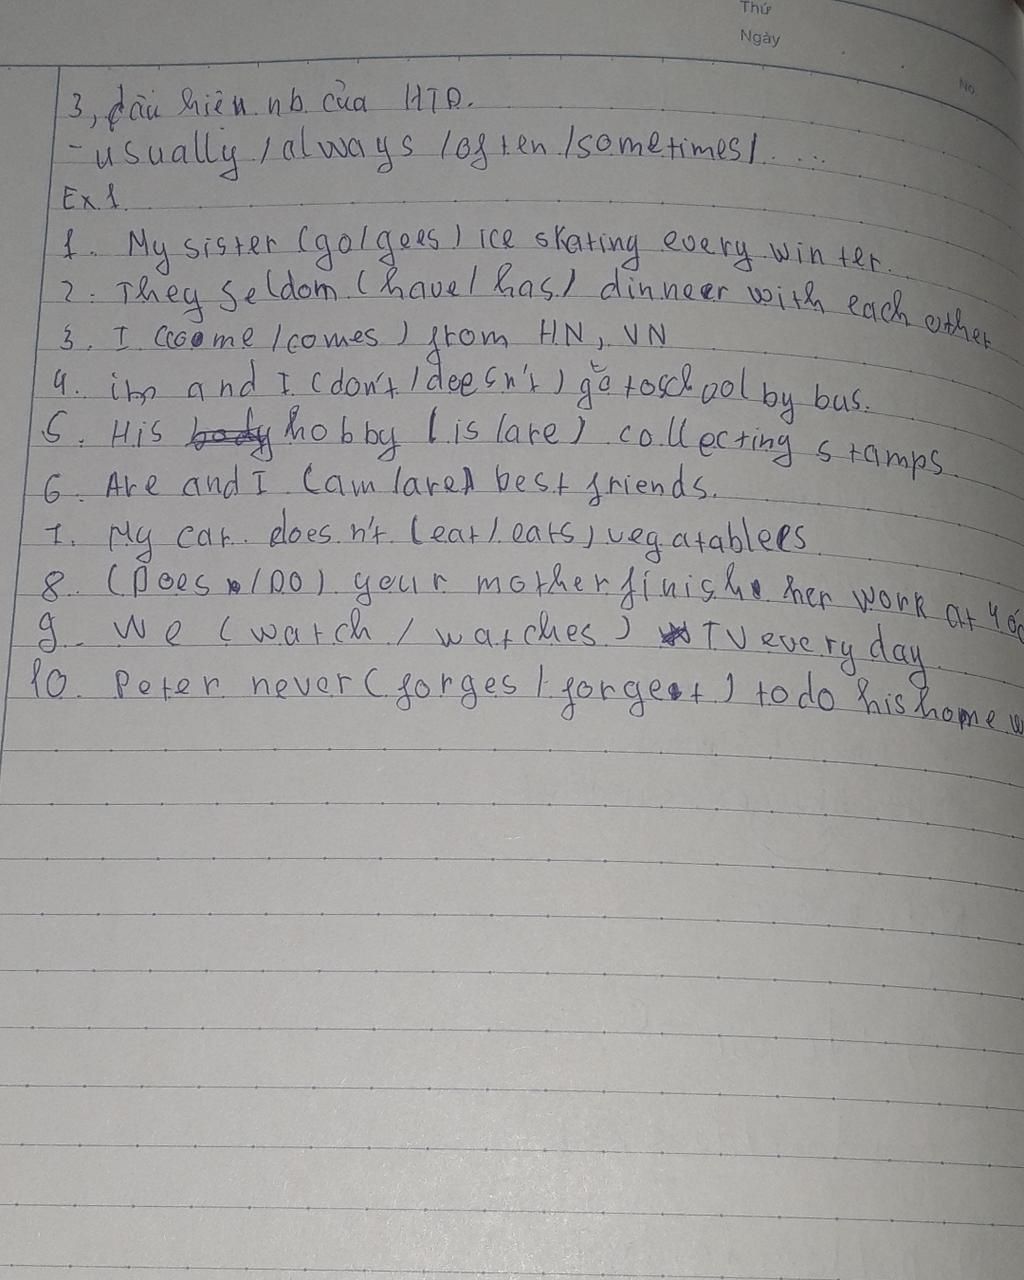 Thứ
Ngày
No.
3, dấu hiệu nb của HTĐ.
- usually / always / often / sometimes / ....
Ex 1.
1. My sister (go / goes) ice skating every winter.
2. They seldom (have / has) dinneer with each other
3. I (come / comes) from HN, VN
4. and I (don't / doesn't) go to school by bus.
5. His hobby (is / are) collecting stamps.
6. Are and I (am / are) best friends.
7. My car doesn't (eat / eats) vegatablees
8. (Does / Do) your mother finish her work at 4
9. We (watch / watches) TV every day
10. Peter never (forges / forget) to do his home w